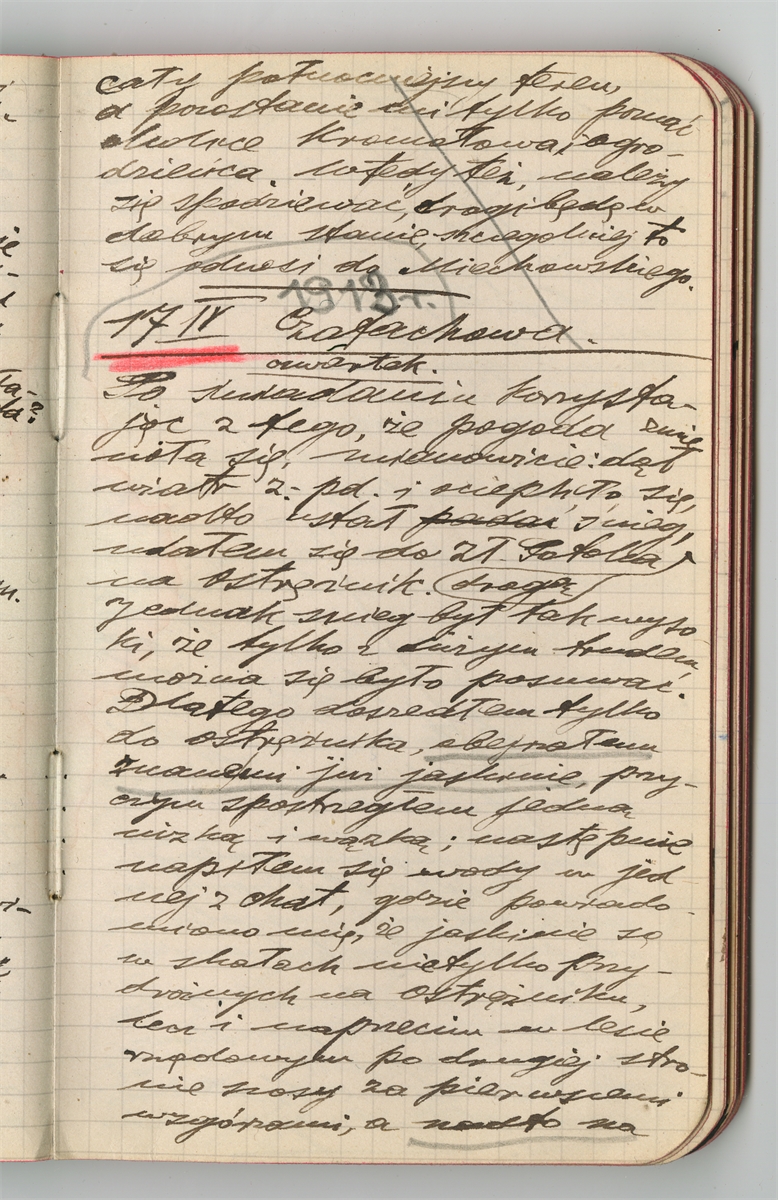 cały północniejszy teren,
a pozostanie mi tylko poznać
okolice Kromołowa i Ogro-
dzieńca. Wtedy też, należy
się spodziewać, drogi będą w
dobrym stanie, szczególniej to
się odnosi do Miechowskiego.
1913 r.
17 IV Czatachowa.
czwartek.
Po śniadaniu korzysta-
jąc z tego, że pogoda zmie
niła się, mianowicie: dął
wiatr z. pd. i ociepliło się,
nadto ustał padać śnieg,
udałem się do Zł Potoka
na Ostrężnik. drogą
Jednak śnieg był tak wyso
ki, że tylko z dużym trudem
można się było posuwać.
Dlatego doszedłem tylko
do Ostrężnika, obejrzałem
znane mi już jaskinie, przy-
czym spostrzegłem jedną
nizką i wązką; następnie
napiłem się wody w jed
nej z chat, gdzie powiado-
miono mię, że jaskinie są
w skałach nietylko przy-
drożnych na Ostrężniku,
lecz i naprzeciw w lesie
rządowym po drugiej stro-
nie szosy za pierwszemi
wzgórzami, a nadto na